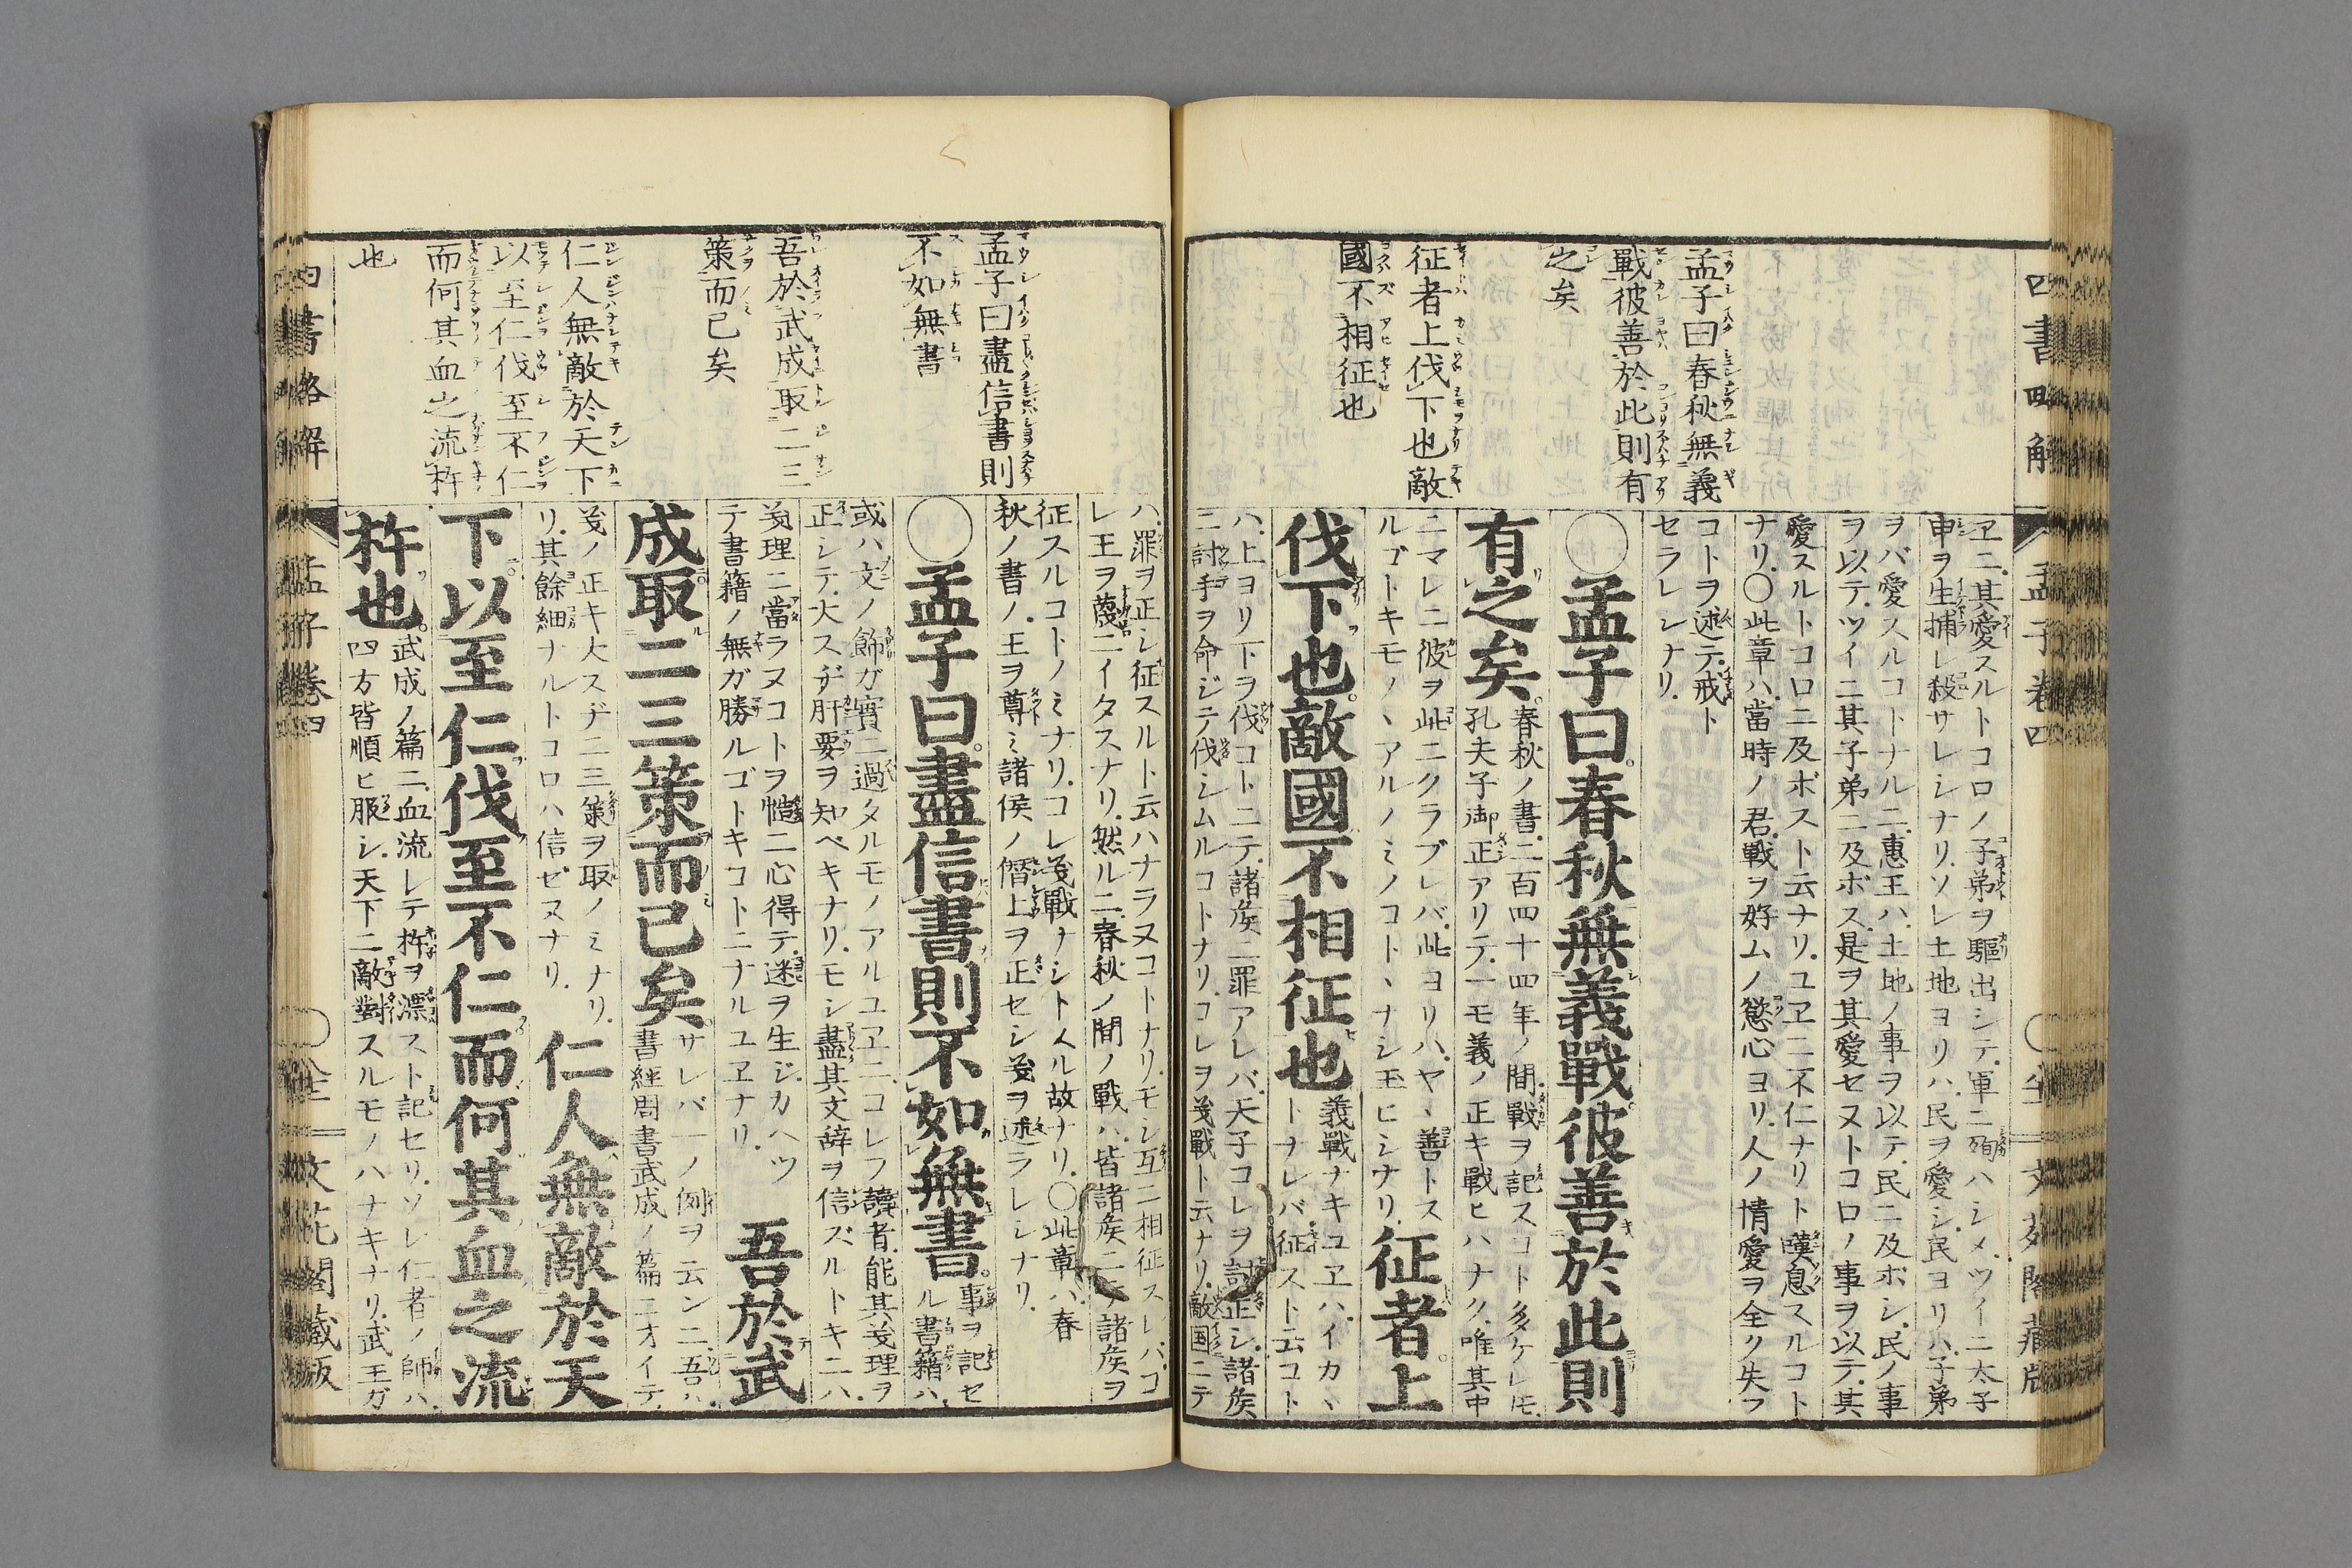 四書略解
孟子卷四
孟子曰春秋無義
戰彼善於此則有
之矣
征者上伐下也敵
國不相征也
ヱニ其愛スルトコロノ子弟ヲ驅出シテ軍ニ殉ハシメツイニ太子
申ヲ生捕レ殺サレシナリソレ土地ヨリハ民ヲ愛シ民ヨリハ子弟
ヲバ愛スルコトナルニ惠王ハ土地ノ事ヲ以テ民ニ及ボシ民ノ事
ヲ以テツイニ其子弟ニ及ボス是ヲ其愛セヌトコロノ事ヲ以テ其
愛スルトコロニ及ボスト云ナリユヱニ不仁ナリト嘆息スルコト
ナリ〇此章ハ當時ノ君戰ヲ好ムノ慾心ヨリ人ノ情愛ヲ全ク失フ
コトヲ述テ戒ト
セラレシナリ
〇孟子曰春秋無義戰彼善於此則
有之矣
春秋ノ書二百四十四年ノ間戰ヲ記スコト多ケレモ
孔夫子御正アリテ一モ義ノ正キ戰ヒハナク唯其中
ニマレニ彼ヲ此ニクラブレバ此ヨリハヤヽ善トス
ルゴトキモノヽアルノミノコトヽナシ玉ヒシナリ
征者上
伐下也敵國不相征也
義戰ナキユヱハイカヽ
トナレバ征スト云コト
ハ上ヨリ下ヲ伐コトニテ諸矦ニ罪アレバ天子コレヲ討正シ諸矦
ニ討手ヲ命ジテ伐シムルコトナリコレヲ義戰ト云ナリ敵国ニテ
孟子曰盡信書則
不如無書
吾於武成取二三
策而已矣
仁人無敵於天下
以至仁伐至不仁
而何其血之流杵
也
ハ罪ヲ正シ征スルト云ハナラヌコトナリモシ互ニ相征スレバコ
レ王ヲ蔑ニイタスナリ然ルニ春秋ノ間ノ戰ハ皆諸矦ニテ諸矦ヲ
征スルコトノミナリコレ義戰ナシトスル故ナリ〇此章ハ春
秋ノ書ノ王ヲ尊ミ諸侯ノ僭上ヲ正セシ義ヲ述ラレシナリ
〇孟子曰盡信書則不如無書
事ヲ記セ
ル書籍ハ
或ハ文ノ飾ガ實ニ過タルモノアルユヱニコレヲ讀者能其義理ヲ
正シテ大スヂ肝要ヲ知ベキナリモシ盡其文辞ヲ信ズルトキニハ
義理ニ當ラヌコトヲ慥ニ心得テ迷ヲ生ジカヘツ
テ書籍ノ無ガ勝ルゴトキコトニナルユヱナリ
吾於武
成取二三策而已矣
サレバ一ノ例ヲ云ンニ吾ハ
書経周書武成ノ篇ニオイテ
義ノ正キ大スヂ二三策ヲ取ノミナリ
リ其餘細ナルトコロハ信ゼヌナリ
仁人無敵於天
下以至仁伐至不仁而何其血之流
杵也
武成ノ篇ニ血流レテ杵ヲ漂スト記セリソレ仁者ノ師ハ
四方皆順ヒ服シ天下ニ敵對スルモノハナキナリ武王ガ
四書略解
孟子卷四
文花閣藏版